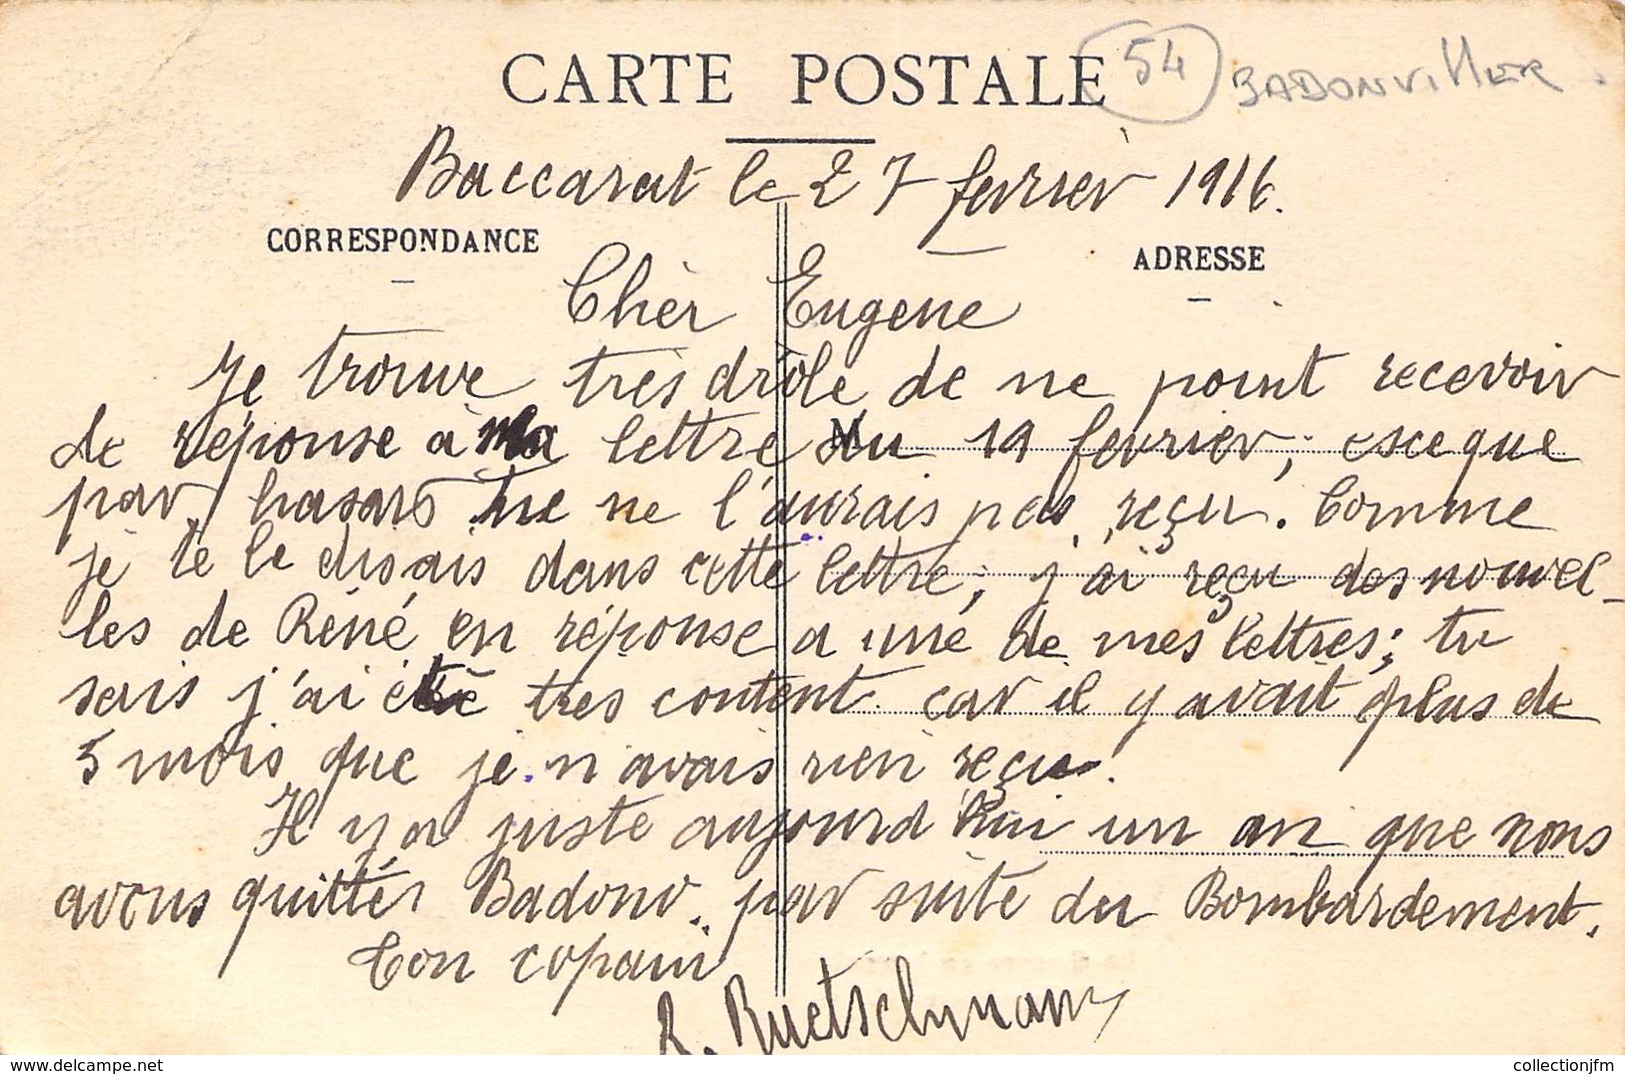 CARTE POSTALE
54 BADONVILLER
Baccarat le 27 fevrier 1916.
CORRESPONDANCE
ADRESSE
Cher Eugene
Je trouve très drôle de ne point recevoir
de réponse à ma lettre du 19 fevrier; esceque
par hasard tu ne l'aurais pas reçu. Comme
je te le disais dans cette lettre, j'ai reçu des nouvel-
les de Réné en réponse a une de mes lettres; tu
sais j'ai été tres content car il y avait plus de
5 mois que je n'avais rien reçu.
Il y a juste aujourd'hui un an que nous
avons quittér Badonv. par suite du Bombardement.
Ton copain
R. Ruetschmann
delcampe.net
collectionjfm